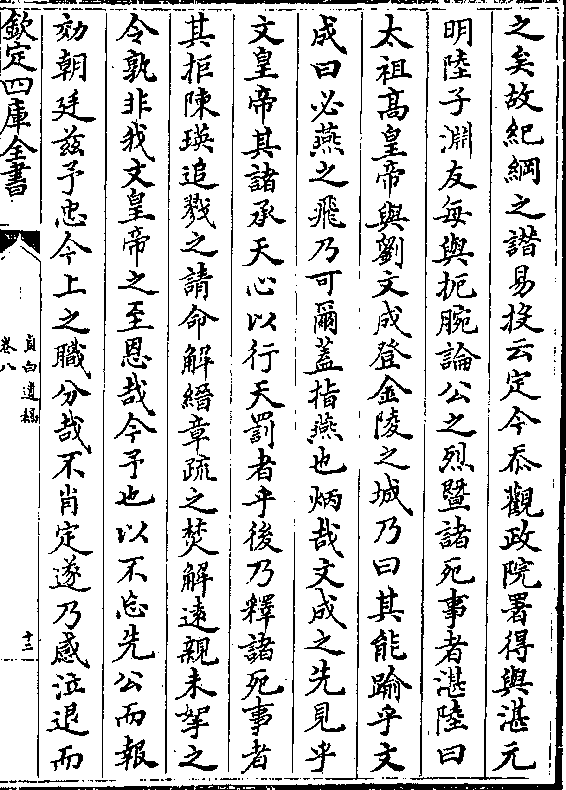 之矣故紀綱之譖易投云定今忝觀政院署得與湛元
明陸子淵友每與扼腕論公之烈暨諸死事者湛陸曰
太祖髙皇帝與劉文成登金陵之城乃曰其能踰乎文
成曰必燕之飛乃可爾蓋指燕也炳哉文成之先見乎
文皇帝其諸承天心以行天罰者乎後乃釋諸死事者
其拒陳瑛追戮之請命解縉章疏之焚解遠親未挐之
令孰非我文皇帝之至恩哉今予也以不忘先公而報
効朝廷兹予忠今上之職分哉不肖定遂乃感泣退而
欽定四庫全書
貞白遺稿
卷八
十二